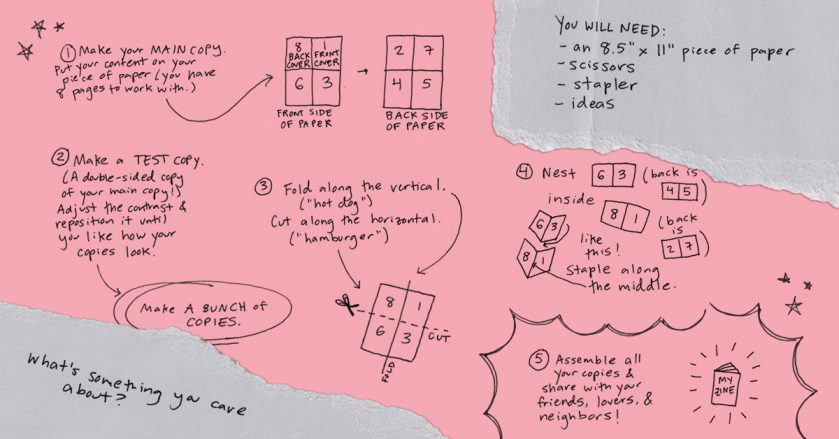 ① Make your MAIN COPY.
Put your content on your
piece of paper (you have
8 pages to work with.)
8 1
BACK FRONT
COVER COVER
6 3
FRONT SIDE
OF PAPER
2 7
4 5
BACK SIDE
OF PAPER
YOU WILL NEED:
- an 8.5" x 11" piece of paper
- scissors
- stapler
- ideas
② Make a TEST COPY.
(A double-sided copy
of your main copy!)
Adjust the contrast &
reposition it until
you like how your
copies look.
Make A BUNCH of
COPIES.
③ Fold along the vertical.
("hot dog")
Cut along the horizontal.
("hamburger")
8 1
6 3
CUT
FOLD
④ Nest 6 3 (back is
4 5)
inside 8 1 (back
is
2 7)
6 3
8 1
like
this!
Staple along
the middle.
⑤ Assemble all
your copies &
share with your
friends, lovers, &
neighbors!
MY
ZINE
What's something you care
about?